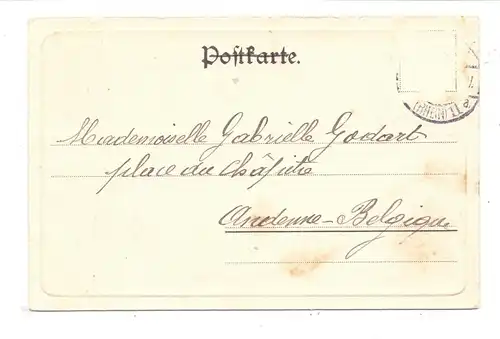 Postkarte.
(RHEIN) 1 e
Mademoiselle Gabrielle Godart
place du Châpitre
Andenne-Belgique